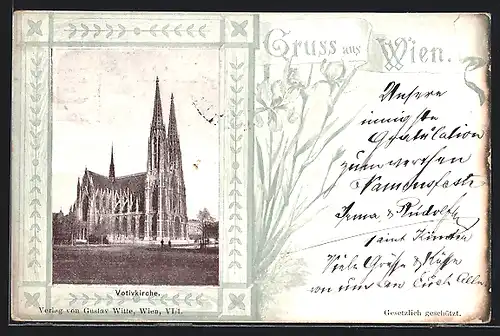 Gruss aus Wien.
Unsere
innigste
Gratulation
zum werthen
Namensfeste
Irma & Rudolf
samt Kinder
Viele Grüße & Küsse
von uns an Euch Alle
Votivkirche.
Verlag von Gustav Witte, Wien, VI/1.
Gesetzlich geschützt.